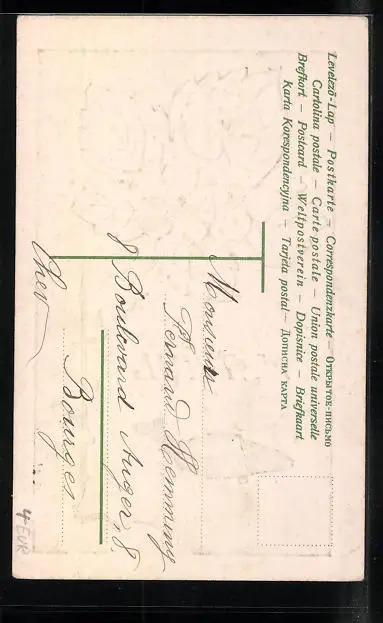 Levelező-Lap – Postkarte – Correspondenzkarte – Открытое письмо
Cartolina postale – Carte postale – Union postale universelle
Brefkort – Postcard – Weltpostverein – Dopisnice – Briefkaart
Karta Korespondencyjna – Tarjeta postal – Дописна карта
Monsieur
Fernand Hemming
8 Boulevard Auger, 8.
Bourges
Cher
4 EUR